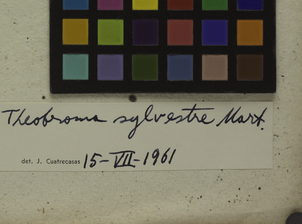 Theobroma sylvestre Mart.
det. J. Cuatrecasas 15-VII-1961